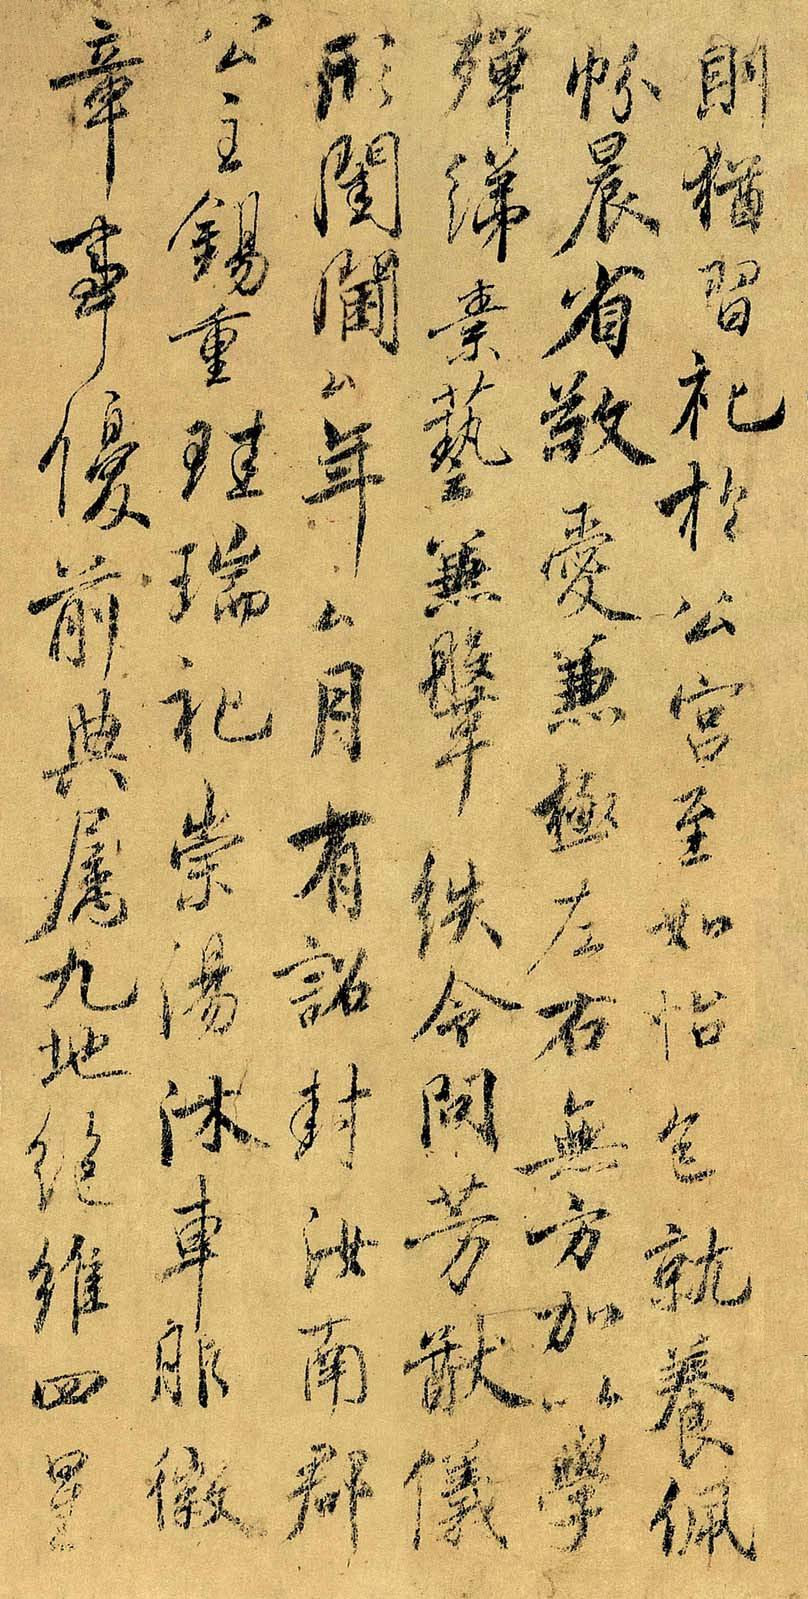 則猶習礼於公宮至如怡色就養佩
帉晨省敬愛兼極左右無方加以學
殫綈素藝兼鞶紩令問芳猷儀
形閨閫厶年厶月有詔封汝南郡
公主錫重珪瑞礼崇湯沐車服徽
章事優前典屬九地絕維四星